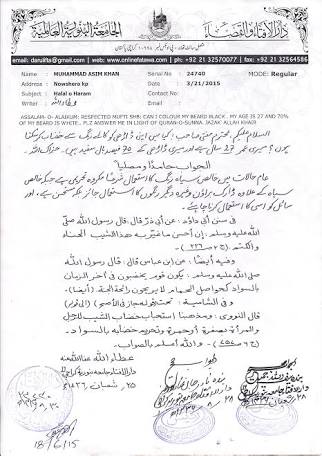 دار الافتاء والقضاء
الجامعة البنورية العالمية
email: darulifta@gmail.com | web: www.onlinefatawa.com | ph: +92 21 32570077 | fax: +92 21 32564586
Name MUHAMMAD ASIM KHAN Serial No 24740 MODE: Regular
Address Nowshero kp Date 3/21/2015
Subject Halal o Haram Writer
ASSALAM- O- ALAIKUM: RESPECTED MUFTI SHB: CAN I COLOUR MY BEARD BLACK . MY AGE IS 27 AND 70%
OF MY BEARD IS WHITE.. PLZ ANSWER ME IN LIGHT OF QURAN-O-SUNNA. JAZAK' ALLAH KHAIR
السلام علیکم محترم مفتی صاحب! کیا میں اپنی ڈاڑھی کو کالے رنگ سے خضاب کر سکتا
ہوں؟ میری عمر 27 سال ہے اور میری ڈاڑھی کے 70 فیصد بال سفید ہیں۔ جزاک اللہ۔
الجواب حامدًا ومصلیا
عام حالات میں خالص سیاہ رنگ کا استعمال شرعًا مکروہ تحریمی ہے جبکہ خالص
سیاہ کے علاوہ ڈارک براؤن وغیرہ دیگر رنگوں کا استعمال جائز بلکہ مستحسن ہے، اور
سائل کو اسی کا استعمال کرنا چاہئے۔
فی سنن أبی داؤد: عن أبی ذر قال: قال رسول اللہ صلی
اللہ علیہ وسلم: إن أحسن ما غیر بہ ھذا الشیب الحناء
والکتم (ج۲ ص۲۲٦)۔
وفیہ أیضًا: عن ابن عباس قال: قال رسول اللہ
صلی اللہ علیہ وسلم: یکون قوم یخضبون فی آخر الزمان
بالسواد کحواصل الحمام لا یریحون رائحة الجنة (أیضا)۔
وفی الشامیة: (إلی قولہ)
قال النووی: ومذھبنا استحباب خضاب الشیب للرجل
والمرأة بصفرة أوحمرة وتحریم خضابہ بالسواد۔
(ج٦ ص۷۵٦) واللہ أعلم بالصواب۔
عطاء اللہ عفا اللہ عنہ
دار الافتاء جامعہ بنوریہ
۲۵ شعبان ۱۴۳٦ھ
18/6/15